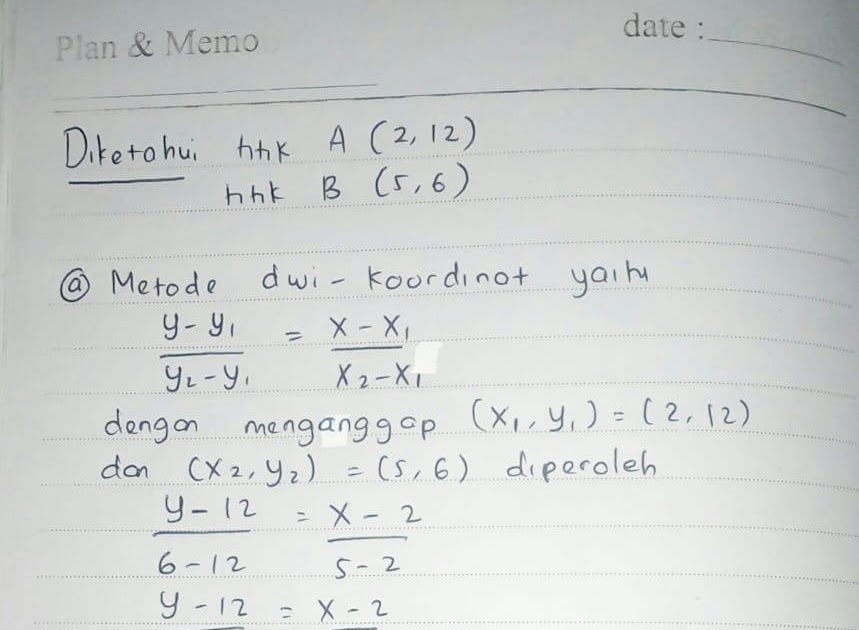 Plan & Memo
date :
Diketahui titik A (2, 12)
titik B (5, 6)
ⓐ Metode dwi - koordinat yaitu
y - y₁ = x - x₁
y₂ - y₁ x₂ - x₁
dengan menganggap (x₁, y₁) = (2, 12)
dan (x₂, y₂) = (5, 6) diperoleh
y - 12 = x - 2
6 - 12 5 - 2
y - 12 = x - 2